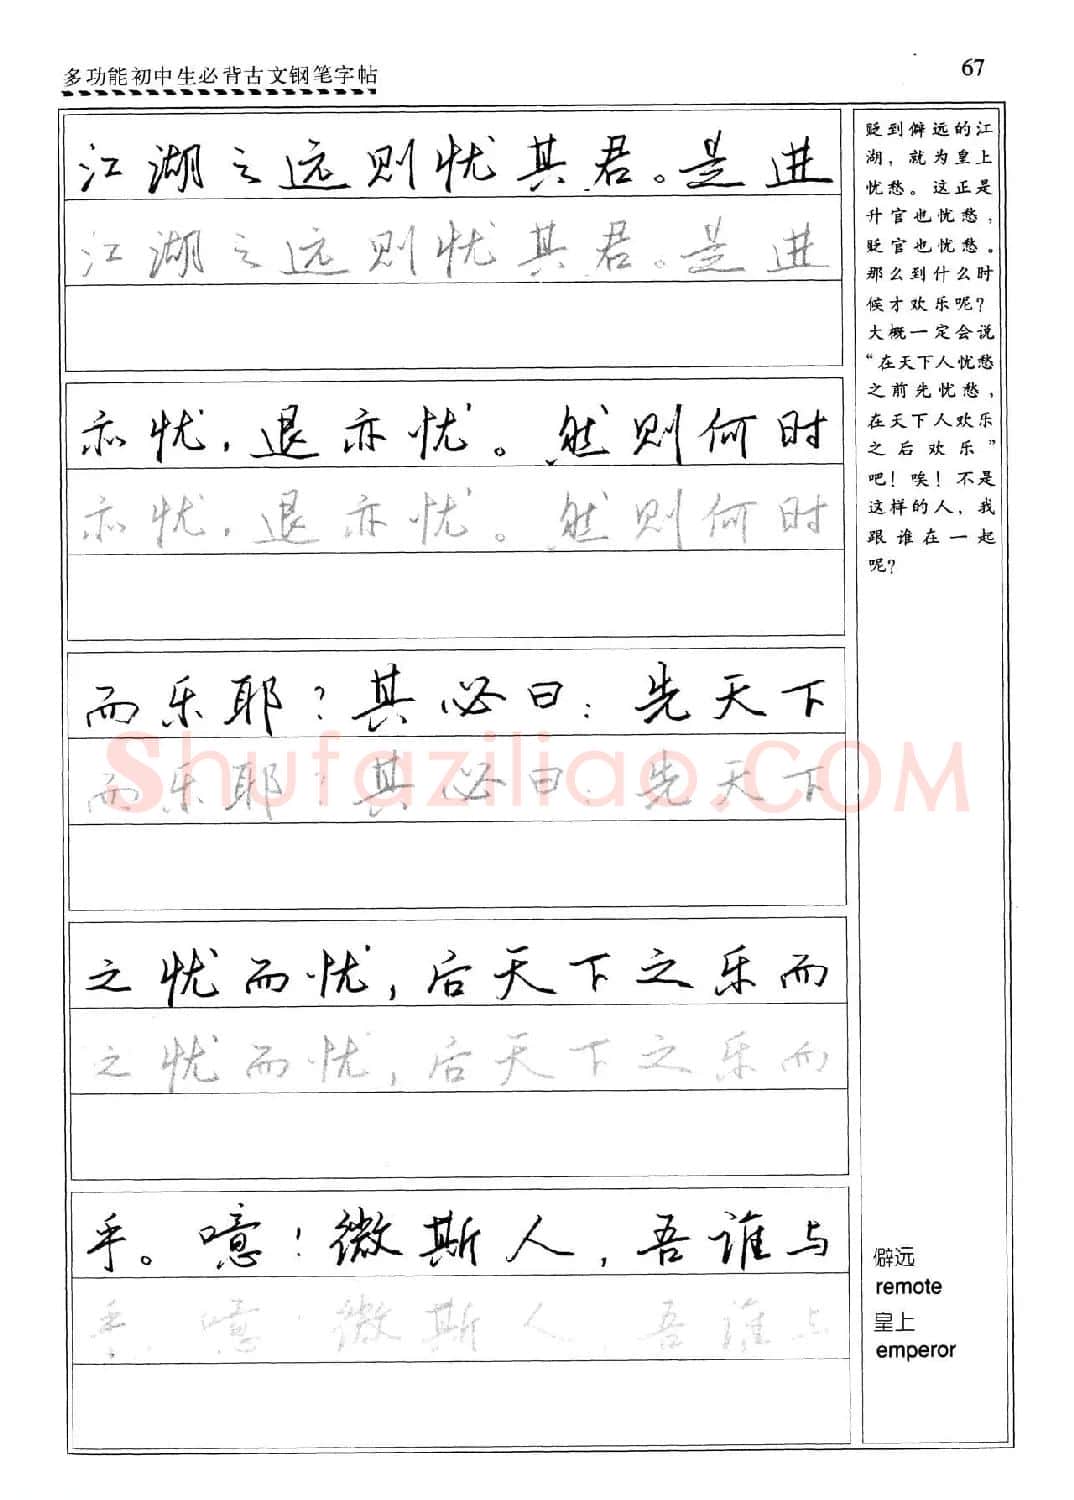 多功能初中生必背古文钢笔字帖
67
江湖之远则忧其君。是进
江湖之远则忧其君。是进
亦忧，退亦忧。然则何时
亦忧，退亦忧。然则何时
而乐耶？其必曰：先天下
而乐耶？其必曰：先天下
之忧而忧，后天下之乐而
之忧而忧，后天下之乐而
乎。噫！微斯人，吾谁与
乎。噫！微斯人，吾谁与
贬到僻远的江
湖，就为皇上
忧愁。这正是
升官也忧愁，
贬官也忧愁。
那么到什么时
候才欢乐呢？
大概一定会说
“在天下人忧愁
之前先忧愁，
在天下人欢乐
之后欢乐”
吧！唉！不是
这样的人，我
跟谁在一起
呢？
僻远
remote
皇上
emperor
Shufaziliao.COM